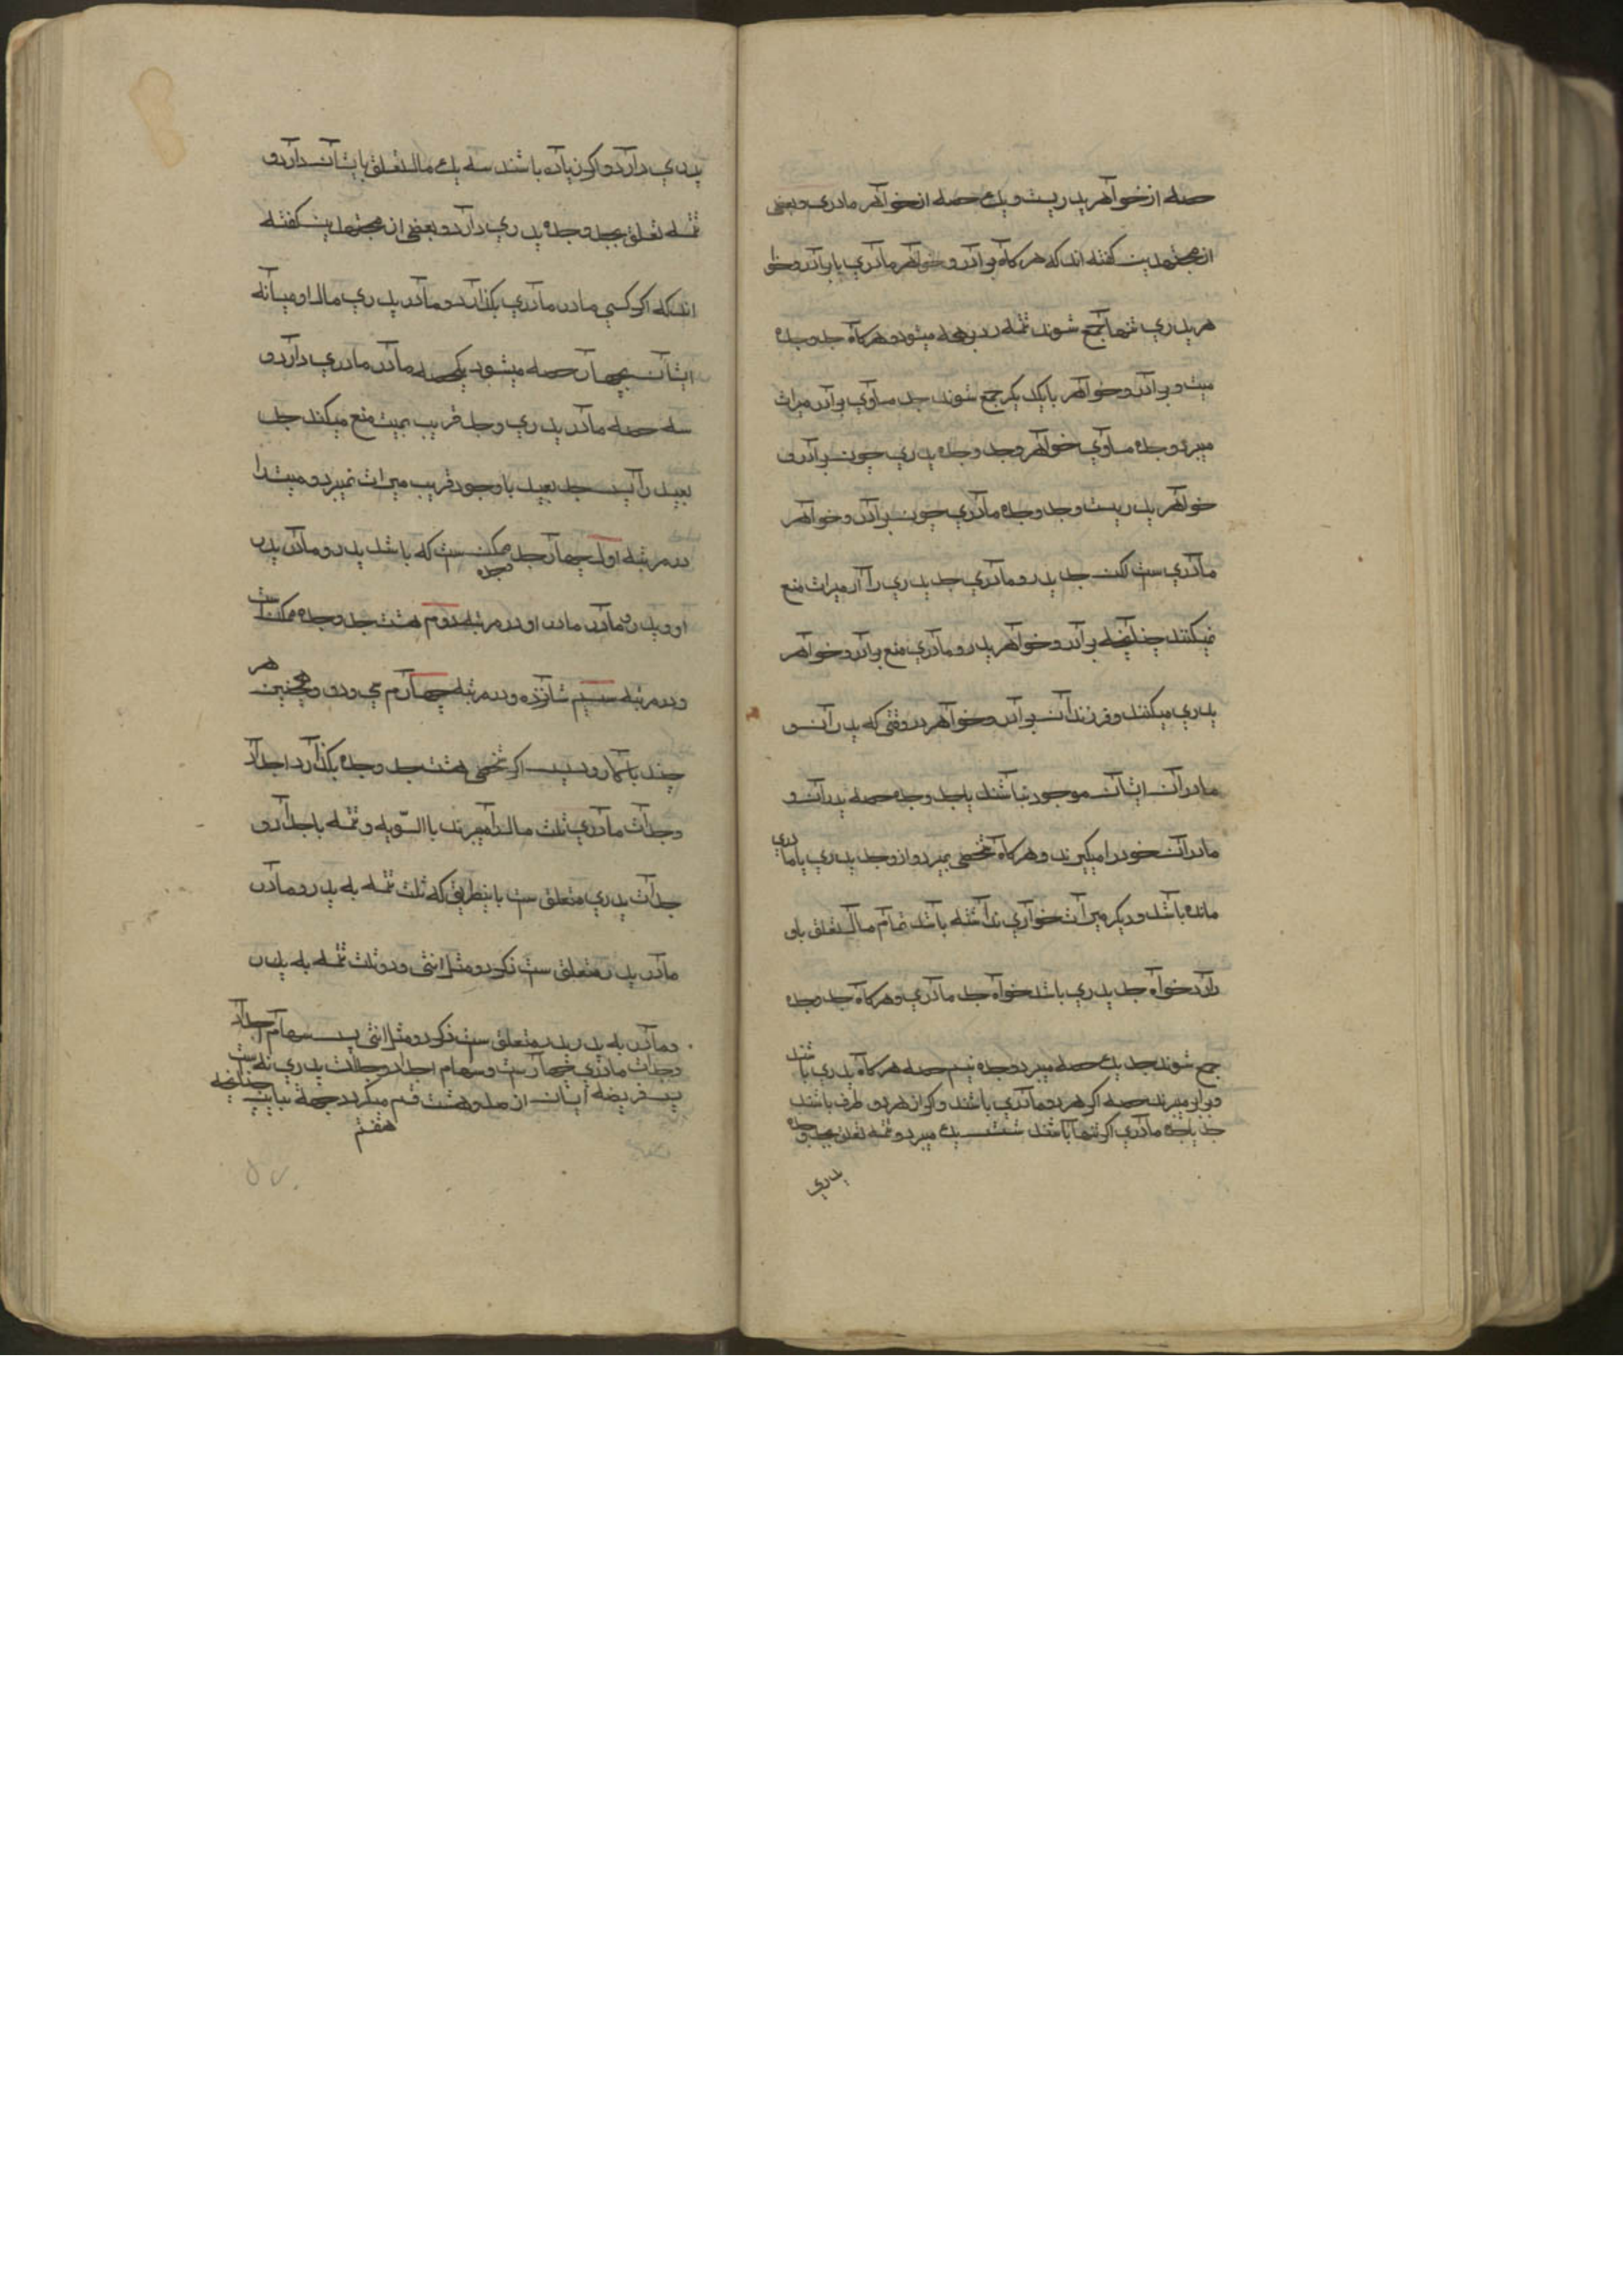 حصه از خواهر پدریست و یک حصه از خواهر مادری و بعضی
از مجتهدین گفته اند که هرکاه برادر و خواهر مادری با برادر و خوا
هر پدری تنها جمع شوند تتمه رد بر همه میشود و هرکاه جد و جده
میت و برادر و خواهر با یکدیکر جمع شوند جد مساوی برادر میراث
میبرد و جده مساوی خواهر و جد و جده پدری چون برادر و
خواهر پدریست و جد و جده مادری چون برادر و خواهر
مادری ست لکن جد پدر و مادری جد پدری را از میراث منع
نمیکنند چنانچه برادر و خواهر پدر و مادری منع برادر و خواهر
پدری میکنند و فرزندان برادر و خواهر در وقتی که پدران و
مادران ایشان موجود نباشند با جد و جده حصه پدران و
مادران خود را میکیرند و هرکاه شخصی بمیرد و از و جد پدری یا مادری
مانده باشد و دیکر میراث خواری نداشته باشد تمام مال تعلق باو
دارد خواه جد پدری باشد خواه جد مادری و هرکاه جد و جده
جمع شوند جد یک حصه میبرد و جده نیم حصه هرکاه پدری باشند
و برابر میبرند حصه اکر هر دو مادری باشند و اکر از هر دو طرف باشند
جد یا جده مادری اکر تنها باشند شش یک میبرد و تتمه تعلق بجد و جده
پدری
پدری دارد و اکر زیاده باشند سه یک مال تعلق بایشان دارد و
تتمه تعلق بجد و جده پدری دارد و بعضی از مجتهدین کفته
اند که اکر کسی مادر مادری بکذارد و مادر پدری مال او میانه
ایشان بچهار حصه میشود یکحصه مادر مادری دارد و
سه حصه مادر پدری و جد قریب بمیت منع میکند جد
بعید را پس جد بعید با وجود قریب میراث نمیبرد و میت را
در مرتبه اول چهار جد وجده ممکن ست که باشد پدر و مادر پدر
او و پدر و مادر مادر او و در مرتبه دوم هشت جد و جده ممکن است
و در مرتبه سیم شانزده و در مرتبه چهارم سی و دو و همچنین هر
چند بالا رود پس اکر شخصی هشت جد و جده بکذارد اجداد
و جدات مادری ثلث مال را میبرند بالسّویه و تتمه باجداد و
جدات پدری متعلق ست باینطریق که ثلث تتمه به پدر و مادر
مادر پدر متعلق ست ذکر دو مثل انثی و دو ثلث تتمه به پدر
و مادر پدر پدر متعلق ست ذکر دو مثل انثی پس سهام اجداد
و جدات مادری چهارست و سهام اجداد و جدات پدری نه است
پس فریضه ایشان از صد و هشت قسم میکردد جهة تباین چنانچه
هفتم